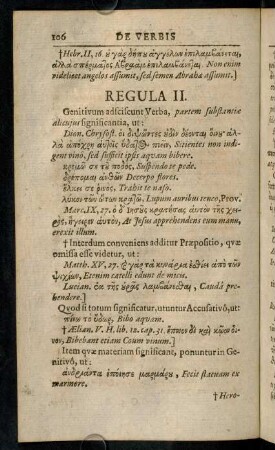 106 DE VERBIS
† Hebr. II, 16. οὐ γὰρ δήπου ἀγγέλων ἐπιλαμβάνεται,
ἀλλὰ σπέρματος Ἀβραὰμ ἐπιλαμβάνεται. Non enim
videlicet angelos assumit, sed semen Abrahæ assumit.]
REGULA II.
Genitivum adsciscunt Verba, partem substantiæ
alicujus significantia, ut:
Dion. Chrysost. οἱ διψῶντες οἴνου
ἀπόχρη αὐτοῖς ὕδατος πιεῖν, Sitientes non indi-
gent vino, sed sufficit ipsis aquam bibere.
κρεμῶ σε τῦ ποδὸς, Suspendo te pede.
δρέπομαι ἀνθῶν Decerpo flores.
ἕλκει σε ῥινὸς, Trahit te naso.
λύκον τῶν ὤτων κρατῶ, Lupum auribus teneo, Prov.
Marc. IX, 27. ὁ δὲ Ἰησῦς κρατήσας αὐτὸν τῆς χει-
ρὸς, ἤγειρεν αὐτὸν, At Jesus apprehendens eum manu,
erexit illum.
† Interdum conveniens additur Præpositio, quæ
omissa esse videtur, ut:
Matth. XV, 27. τὰ κυνάρια ἐσθίει ἀπὸ τῶν
ψιχίων, Etenim catelli edunt de micis.
Lucian. ἐκ τῆς οὐρᾶς λαμβάνεσθαι, Caudâ pre-
hendere.]
Quod si totum significatur, utuntur Accusativô, ut:
πίνω τὸ ὕδωρ, Bibo aquam.
† Ælian. V. H. lib. 12. cap. 31. ἔπινον δὲ καὶ κῶον οἶ-
νον, Bibebant etiam Coum vinum.]
Item quæ materiam significant, ponuntur in Ge-
nitivô, ut:
ἀνδριάντα ἐποίησε μαρμάρου, Fecit statuam ex
marmore.
† Hero-